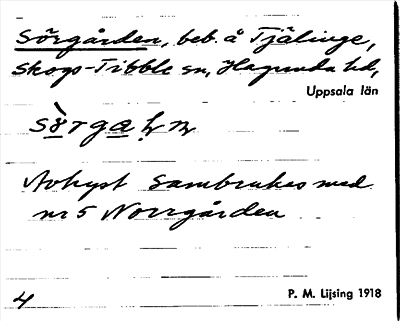 Sörgården, beb. å Tjälinge,
Skogs-Tibble sn, Hagunda hd,
Uppsala län
Avhyst Sambrukes med
nr 5 Norrgården
4
P. M. Lijsing 1918